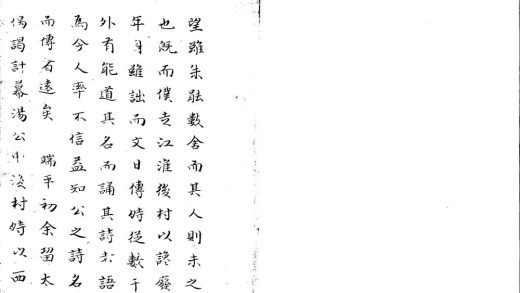 望雖數舍而其人則未之
也既而僕走江淮後村以謗廢
年身雖詘而文日傳時從數千
外有能道其名而誦其詩語
為今人率不信益知公之詩名
而傳者遠矣　端平初余留太
偶謁計幕湯公巾後村時以西